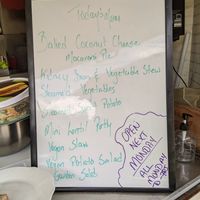 Today's Menu
Baked Coconut Cheese
Macaroni Pie
Kidney Bean & Vegetable Stew
Steamed Vegetables
Steamed Potato
Mini Lentil Patty
Vegan Slaw
Vegan Potato Salad
Garden Salad
OPEN
NEXT
MONDAY
ALL
MONDAY
TO